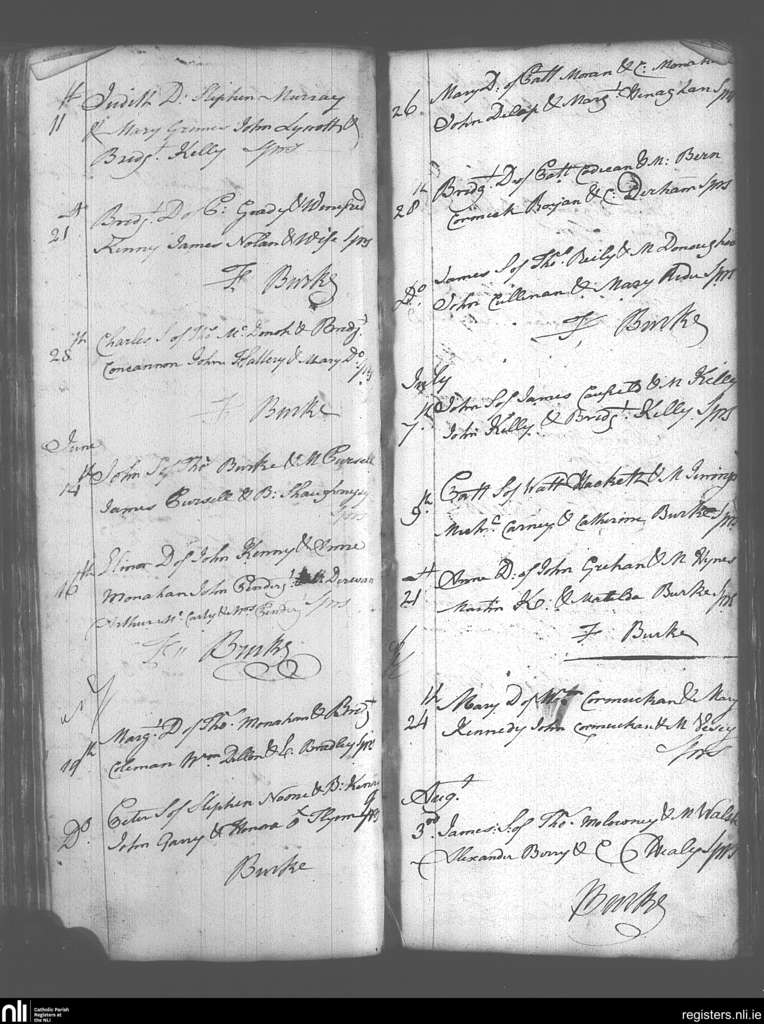 11th Judith D. Stephen Murray
& Mary Grimes John Lynott &
Bridgt. Kelly Sprs
21st Bridgt. D of P: Grady & Winefred
Kenny James Nolan & Wife Sprs
Fr Burke
28th Charles S of Wm Mc Donoh & Bridgt.
Concannon John Hallery & Mary Do Sprs
Fr Burke
June
14th John S of Thos Burke & M Pursell
James Pursell & B: Shaughnessy
Sprs
16th Elinor D of John Kenny & Anne
Monahan John Prendergt. Derevan
Arthur Mc Carty & Mrs Sprs
Fr Burke
19th Margt. D of Thos. Monahan & Bridgt
Coleman Wm Dillon & C. Bradley Sprs
Do Peter S of Stephen Noone & B: Kenny
John Garry & Honora O Flynn Sprs
Burke
26 Mary D: of Patt Moran & C: Monahan
John Delap & Margt. Henaghan Sprs
28th Bridgt. D of Patt & M: Bern
Cormick & C. Derham Sprs
Do. James S of Thos. Reily & M Donoughoe
John Cullinan & Mary Sprs
Fr Burke
July
7th John S of James Caufield & M Kelly
John Kelly & Bridgt. Kelly Sprs
9th Patt S of Watt Hackett & M Jinnings
Michl. Carney & Catherine Burke Sprs
21st Anne D: of John Grehan & M Hynes
Martin K: & Matilda Burke Sprs
Fr Burke
24th Mary D of Cormuckan & Mary
Kennedy John Cormuckan & M Vesey
Sprs
Augt.
3rd James: S: of Thos. Molowney & M Walsh
Alexander Berry & C Healy Sprs
Burke
nli
Catholic Parish
Registers at
the NLI
registers.nli.ie